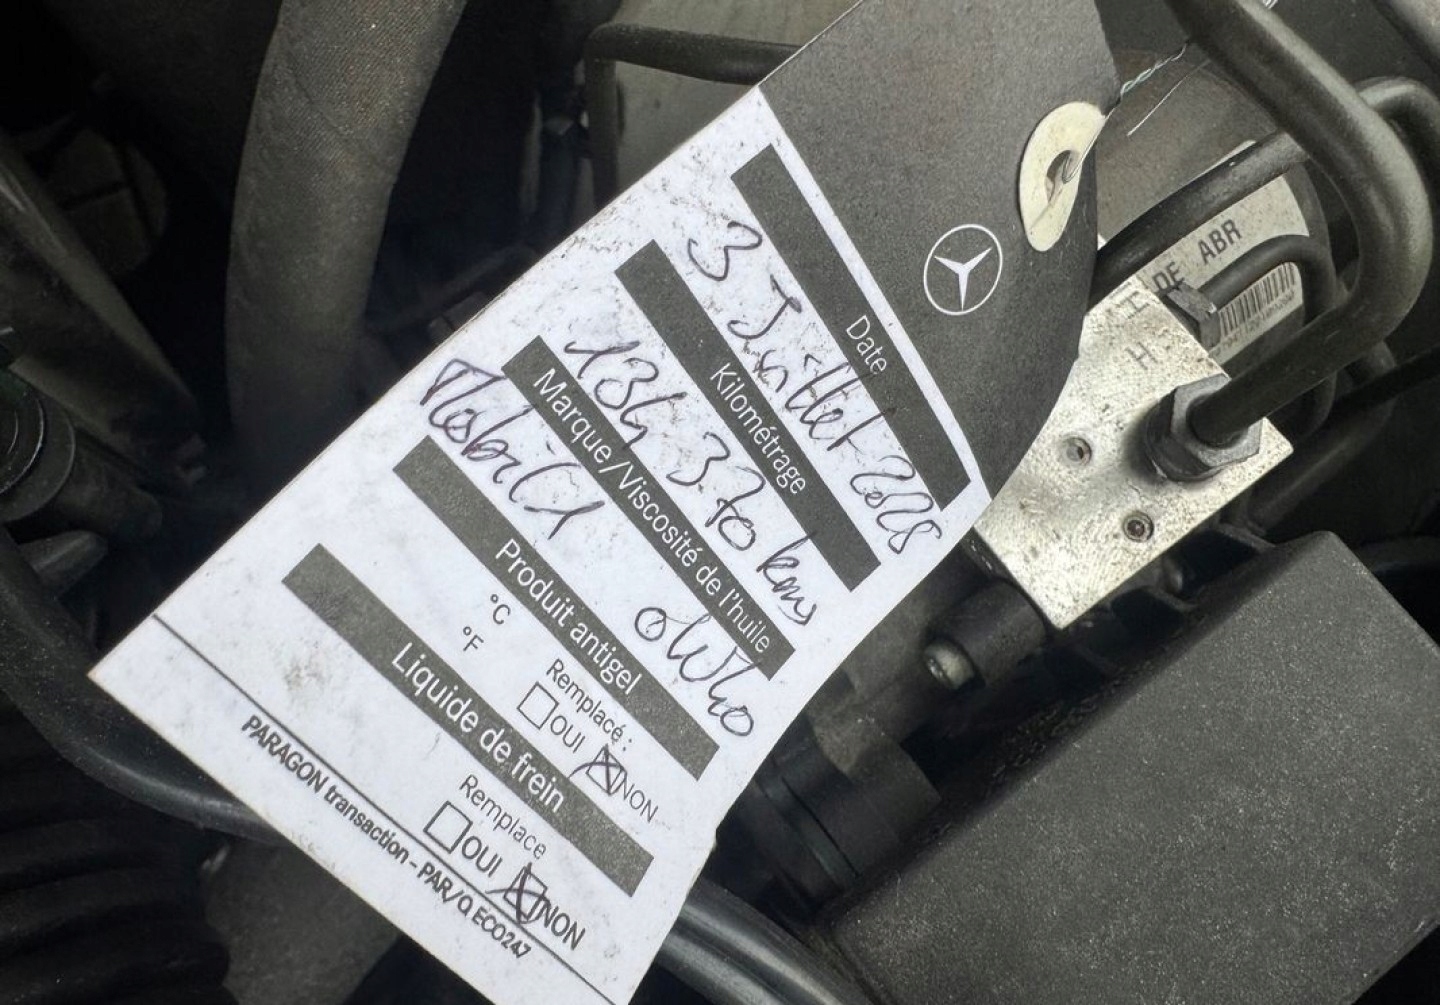 Date
3 Juillet 2025
Kilométrage
134 370 kms
Marque/Viscosité de l'huile
Mobil 1 0W40
Produit antigel
°C
°F
Remplacé :
OUI NON
Liquide de frein
Remplacé
OUI NON
PARAGON transaction - PAR/Q ECO247
DE ABR
H
H